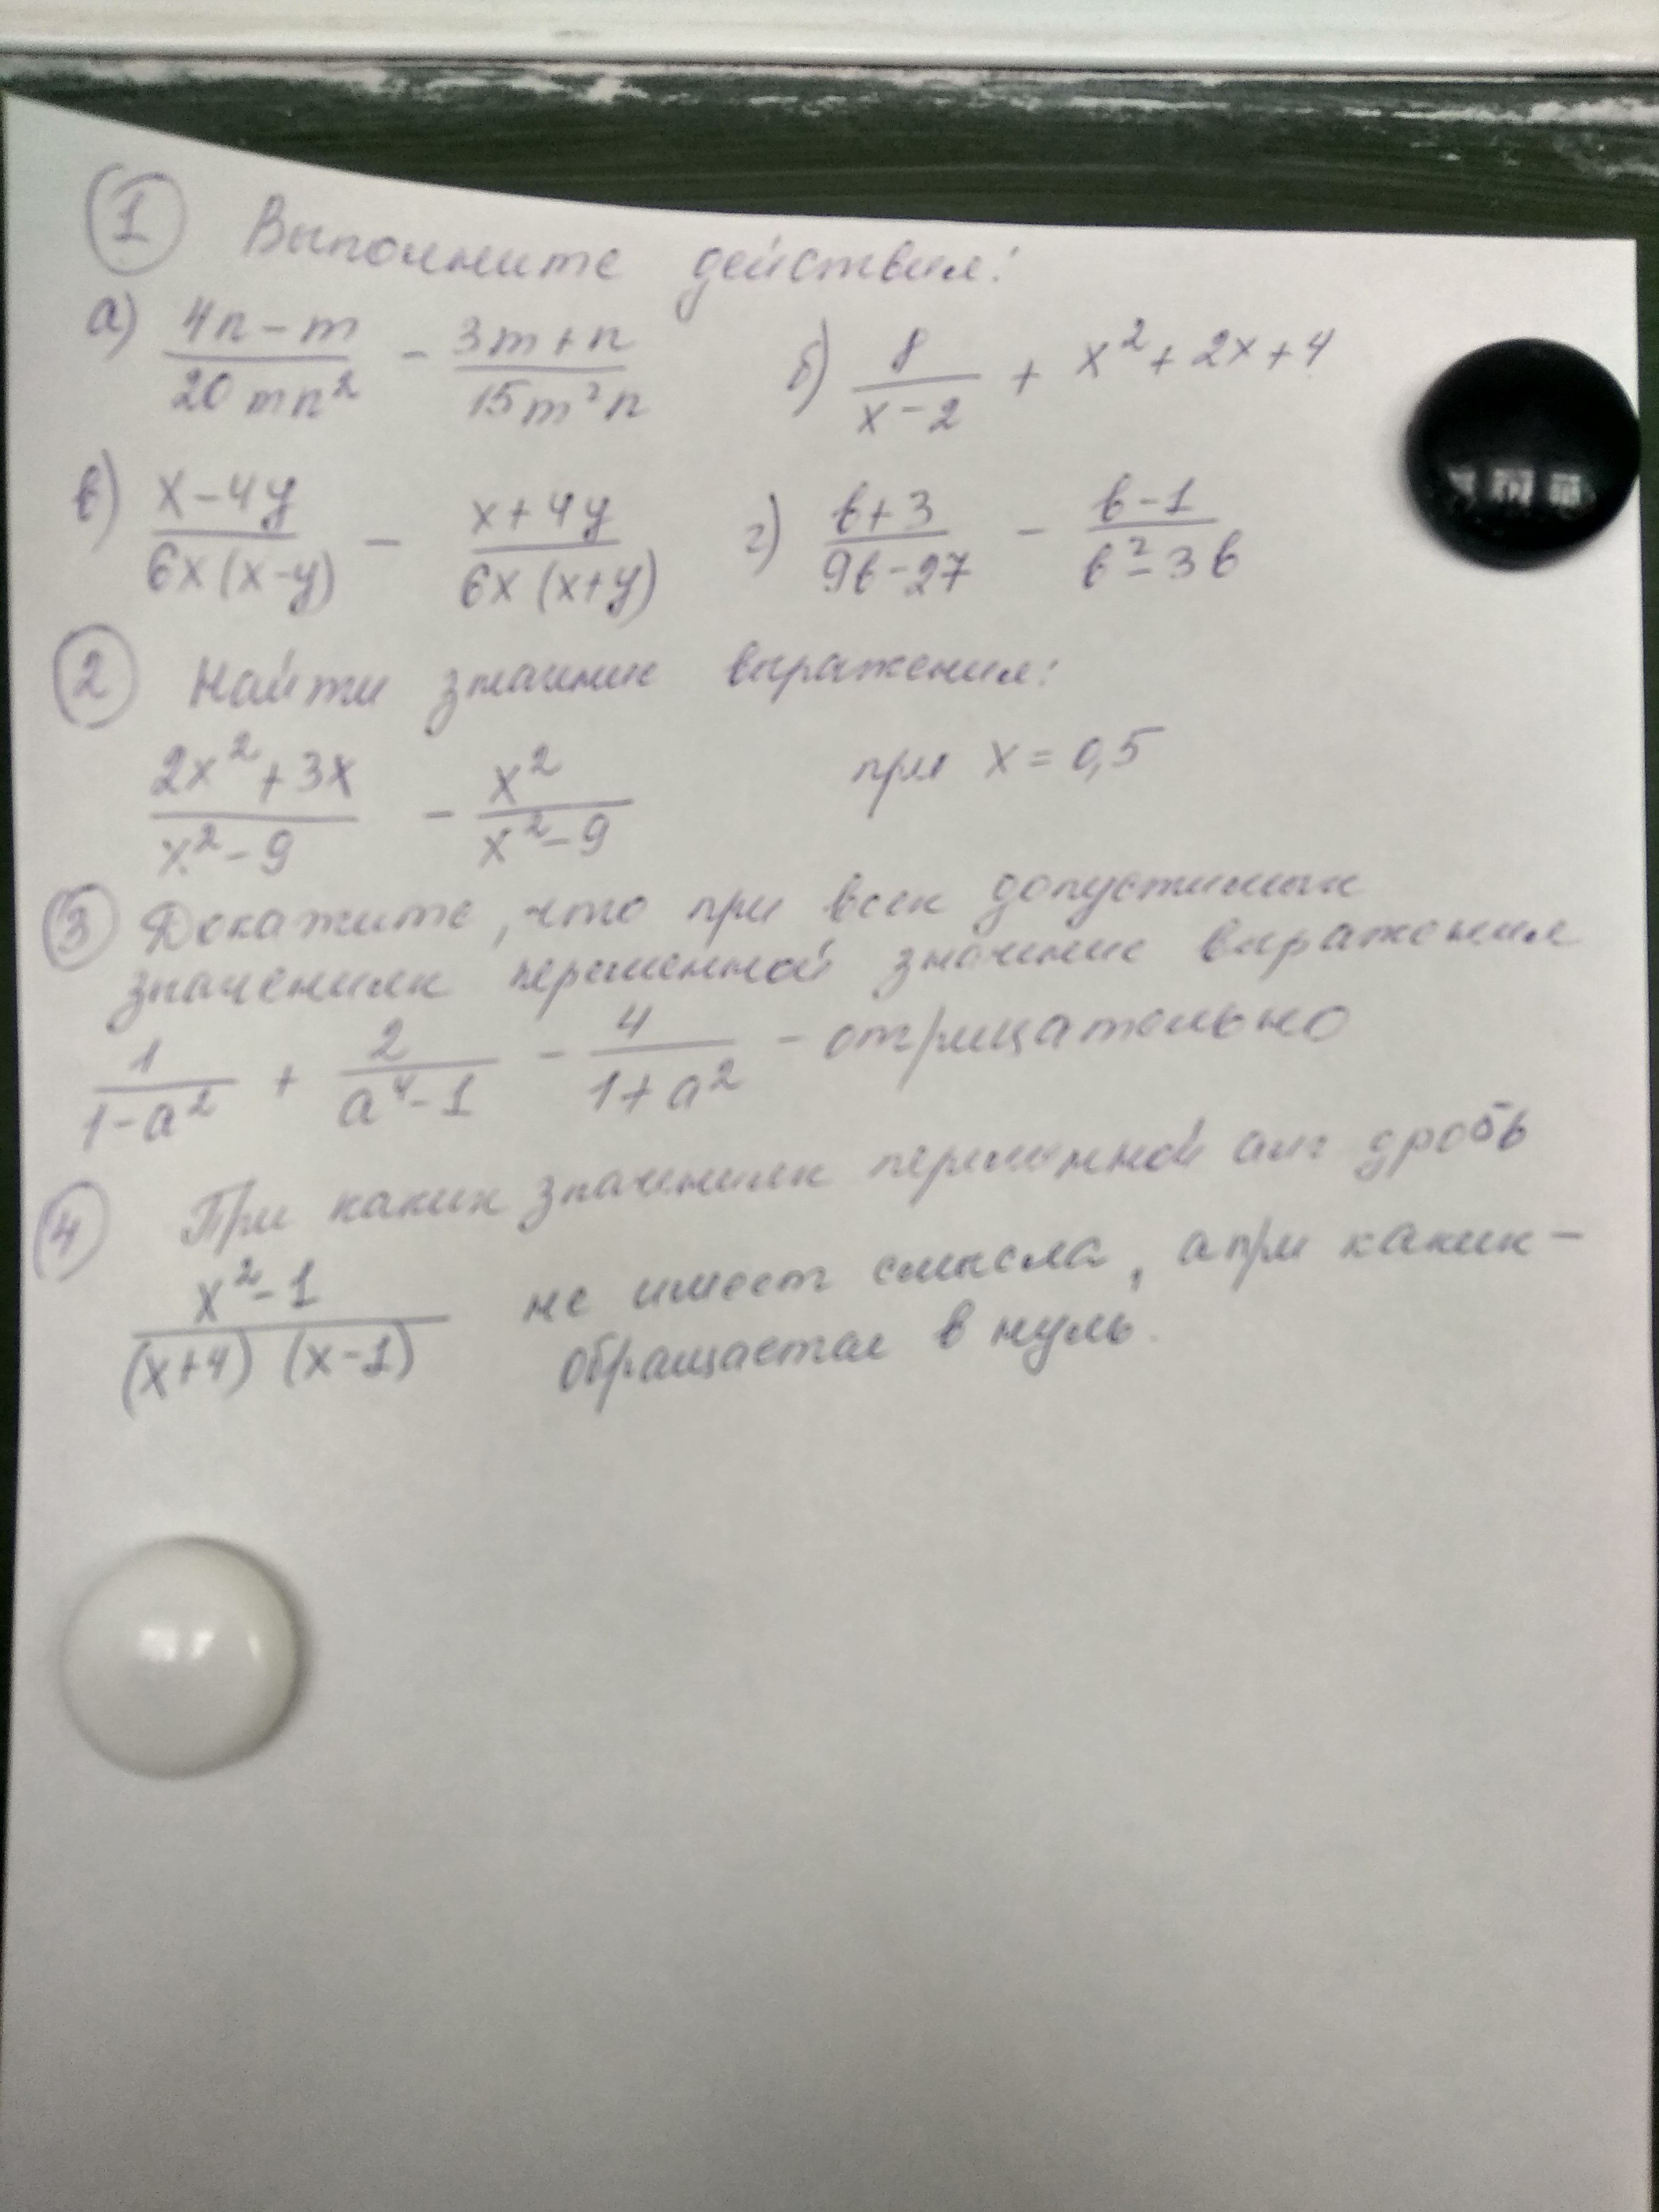 1 Выполните действия:
а) (4n-m)/(20mn²) - (3m+n)/(15m²n) б) 8/(x-2) + x²+2x+4
в) (x-4y)/(6x(x-y)) - (x+4y)/(6x(x+y)) г) (b+3)/(9b-27) - (b-1)/(b²-3b)
2 Найти значение выражения:
(2x²+3x)/(x²-9) - x²/(x²-9) при x = 0,5
3 Докажите, что при всех допустимых
значениях переменной значение выражения
1/(1-a²) + 2/(a⁴-1) - 4/(1+a²) - отрицательно
4 При каких значениях переменной алг дробь
(x²-1)/((x+4)(x-1)) не имеет смысла, а при каких -
обращается в нуль.